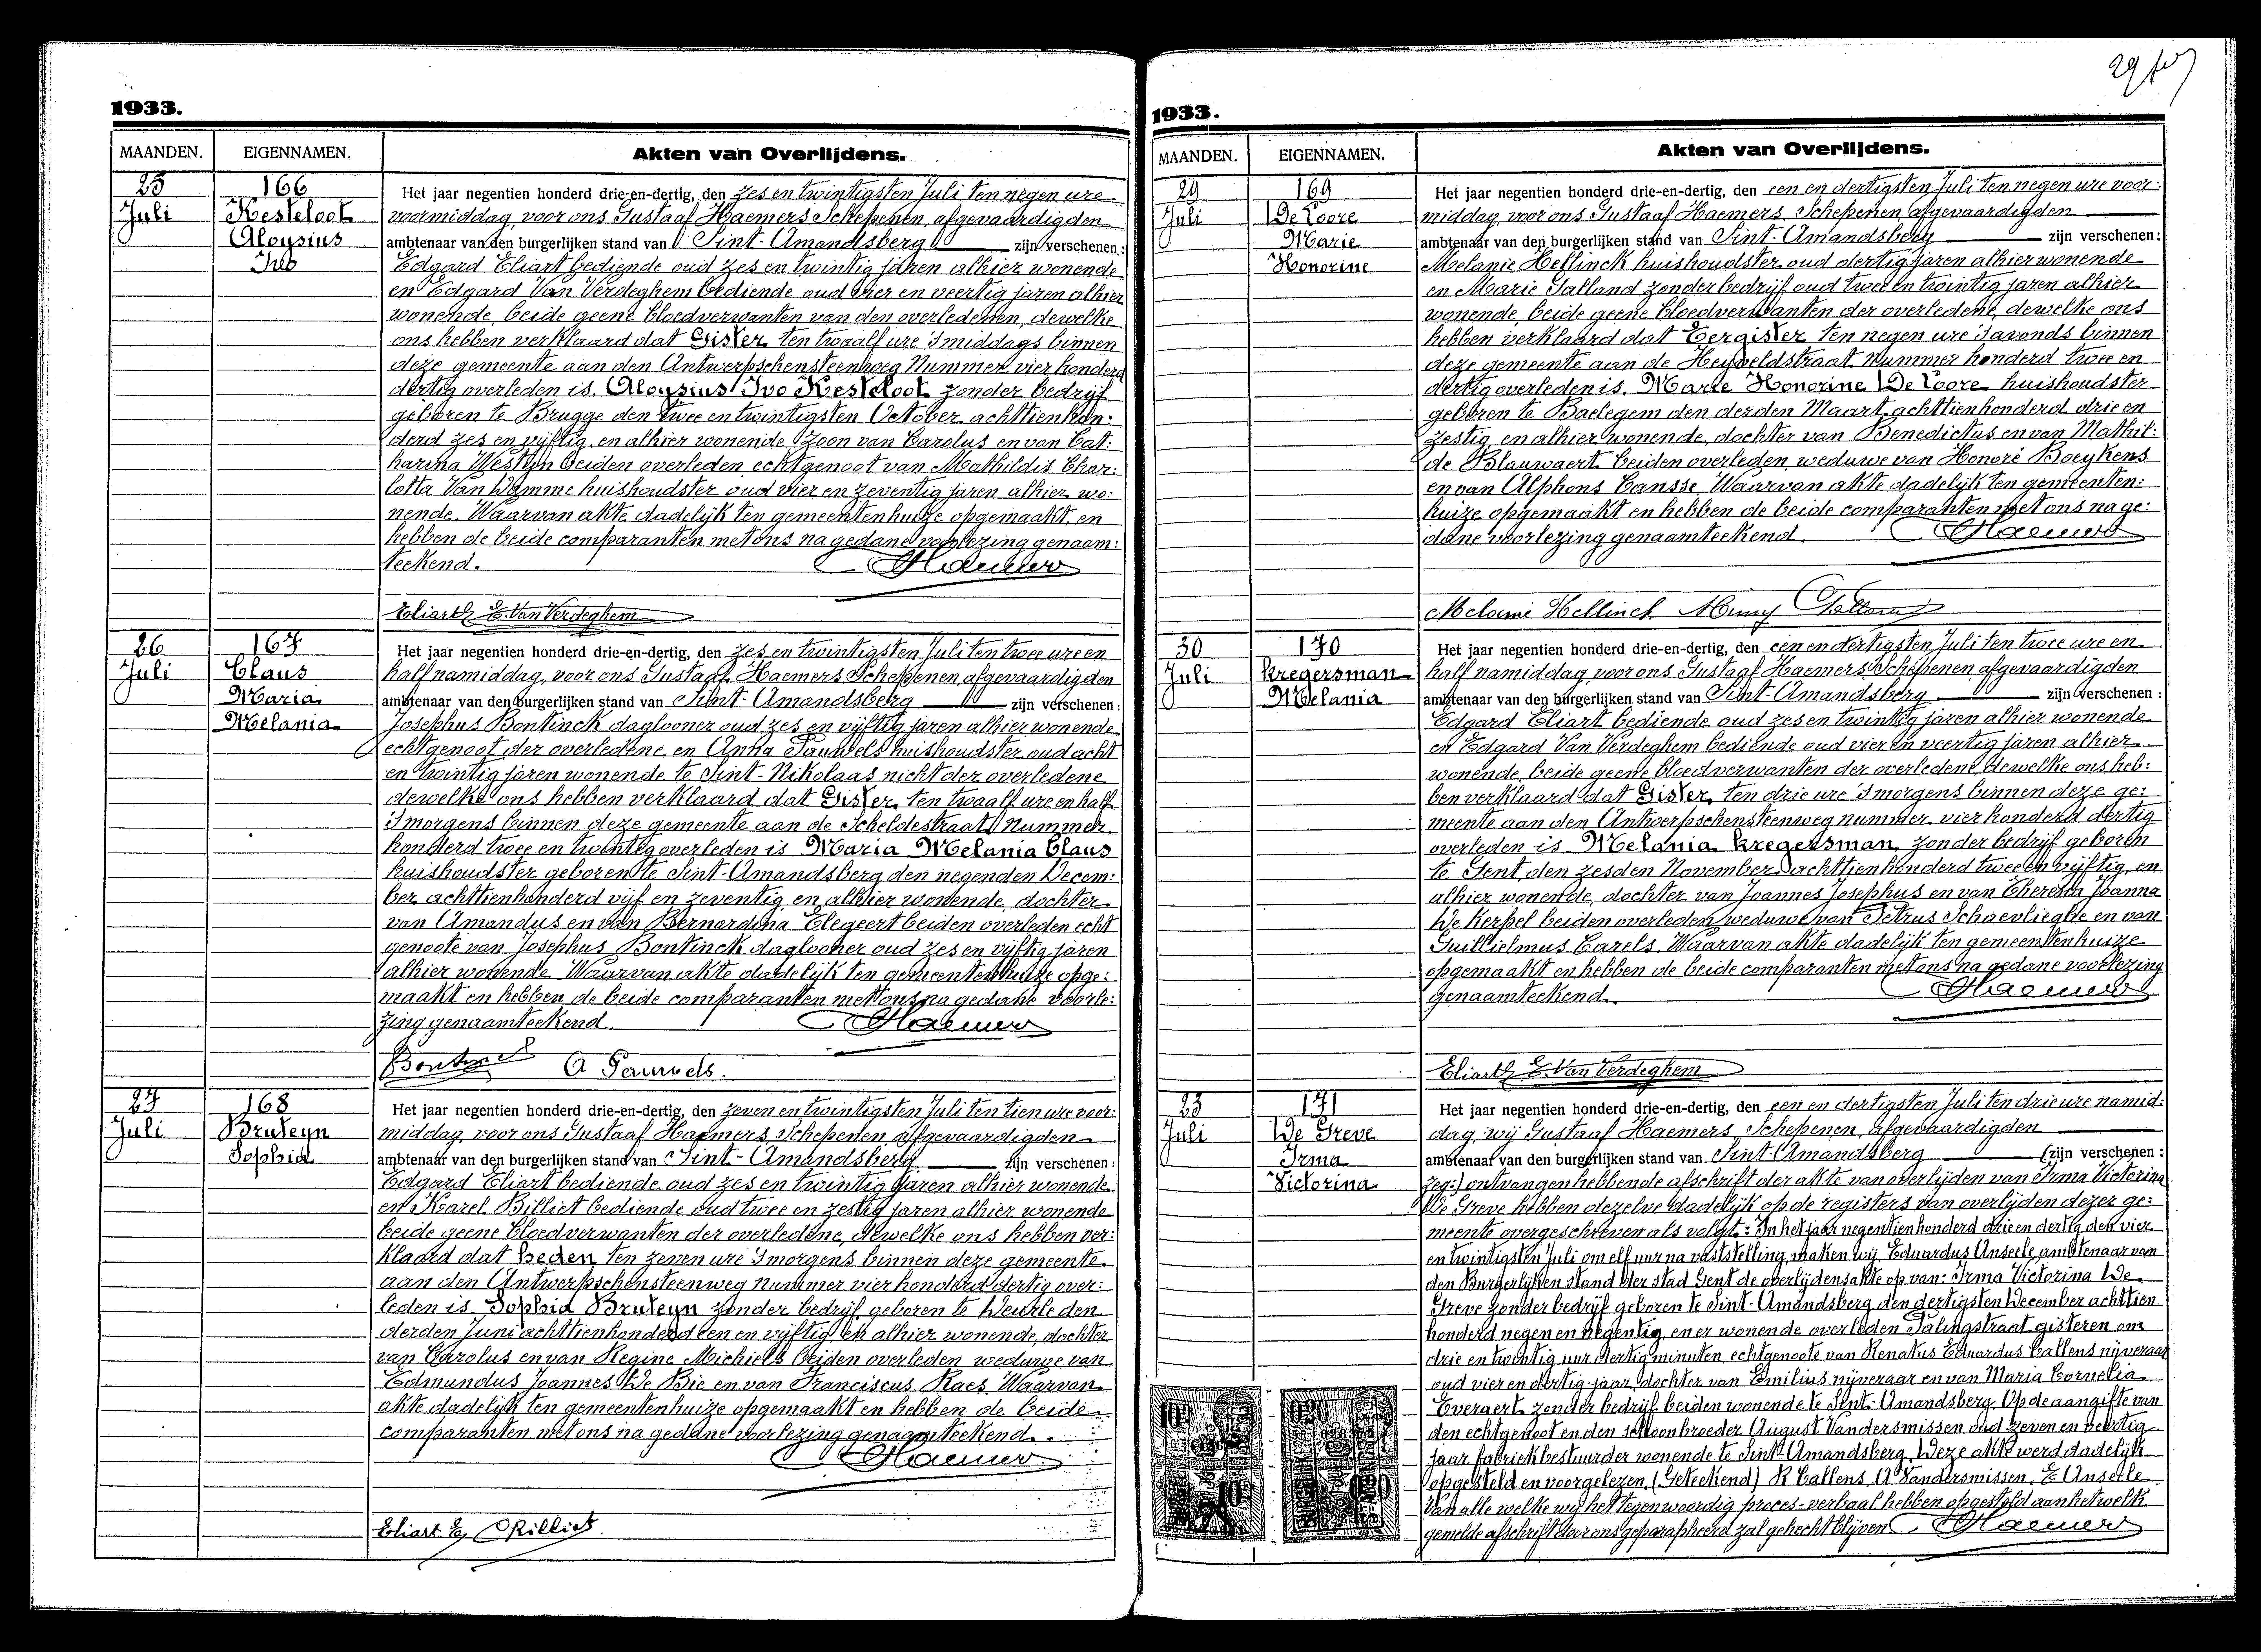 1933.
MAANDEN. EIGENNAMEN. Akten van Overlijdens.
25 Juli
166
Kesteloot
Aloysius
Ivo
Het jaar negentien honderd drie-en-dertig, den zes en twintigsten Juli ten negen ure
voormiddag, voor ons Gustaaf Haemers, Schepenen, afgevaardigden
ambtenaar van den burgerlijken stand van Sint-Amandsberg zijn verschenen:
Edgard Eliart bediende oud zes en twintig jaren alhier wonende
en Edgard Van Verdeghem bediende oud vier en veertig jaren alhier
wonende, beide geene bloedverwanten van den overledenen, dewelke
ons hebben verklaard dat Gister ten twaalf ure 's middags binnen
deze gemeente aan den Antwerpschensteenweg Nummer vier honderd
dertig overleden is Aloysius Ivo Kesteloot zonder bedrijf
geboren te Brugge den twee en twintigsten October achttienhon:
derd zes en vijftig, en alhier wonende Zoon van Carolus en van Cat:
harina Westyn beiden overleden, echtgenoot van Mathildis Char:
lotta Van Damme huishoudster oud vier en zeventig jaren alhier wo:
nende. Waarvan akte dadelijk ten gemeentenhuize opgemaakt, en
hebben de beide comparanten met ons na gedane voorlezing genaam:
teekend. Haemers
Eliart E. E. Van Verdeghem
26 Juli
167
Claus
Maria
Melania
Het jaar negentien honderd drie-en-dertig, den zes en twintigsten Juli ten twee ure en
half namiddag, voor ons Gustaaf Haemers Schepenen afgevaardigden
ambtenaar van den burgerlijken stand van Sint-Amandsberg zijn verschenen:
Josephus Bontinck daglooner oud zes en vijftig jaren alhier wonende
echtgenoot der overledene en Anna Pauwels huishoudster oud acht
en twintig jaren wonende te Sint-Nikolaas nicht der overledene
dewelke ons hebben verklaard dat Gister ten twaalf ure en half
's morgens binnen deze gemeente aan de Scheldestraat Nummer
honderd twee en twintig overleden is Maria Melania Claus
huishoudster geboren te Sint-Amandsberg den negenden Decem:
ber achttienhonderd vijf en zeventig en alhier wonende, dochter
van Amandus en van Bernardina Elegeert beiden overleden echt
genoote van Josephus Bontinck daglooner oud zes en vijftig jaren
alhier wonende Waarvan akte dadelijk ten gemeentenhuize opge:
maakt en hebben de beide comparanten met ons na gedane voorle:
zing genaamteekend. Haemers
Bontinck A Pauwels.
27 Juli
168
Bruteyn
Sophia
Het jaar negentien honderd drie-en-dertig, den zeven en twintigsten Juli ten tien ure voor:
middag, voor ons Gustaaf Haemers, Schepenen afgevaardigden
ambtenaar van den burgerlijken stand van Sint-Amandsberg zijn verschenen:
Edgard Eliart bediende oud zes en twintig jaren alhier wonende
en Karel Billiet bediende oud twee en zestig jaren alhier wonende
beide geene bloedverwanten der overledene, dewelke ons hebben ver:
klaard dat heden ten zeven ure 's morgens binnen deze gemeente
aan den Antwerpschensteenweg nummer vier honderd dertig over:
leden is Sophia Bruteyn zonder bedrijf geboren te Deurle den
derden Juni achttienhonderd een en vijftig, en alhier wonende, dochter
van Carolus en van Regine Michiels beiden overleden weduwe van
Edmundus Joannes De Bie en van Franciscus Raes. Waarvan
akte dadelijk ten gemeentenhuize opgemaakt en hebben de beide
comparanten met ons na gedane voorlezing genaamteekend.
Haemers
Eliart E. Billiet
1933.
MAANDEN. EIGENNAMEN. Akten van Overlijdens.
29 Juli
169
De Coore
Marie
Honorine
Het jaar negentien honderd drie-en-dertig, den een en dertigsten Juli ten negen ure voor:
middag, voor ons Gustaaf Haemers, Schepenen afgevaardigden
ambtenaar van den burgerlijken stand van Sint-Amandsberg zijn verschenen:
Melanie Hellinck huishoudster oud dertig jaren alhier wonende
en Marie Galland zonder bedrijf oud twee en twintig jaren alhier
wonende, beide geene bloedverwanten der overledene, dewelke ons
hebben verklaard dat Eergister ten negen ure 's avonds binnen
deze gemeente aan de Heyveldstraat nummer honderd twee en
dertig overleden is Marie Honorine De Coore huishoudster
geboren te Baelegem den derden Maart achttienhonderd drie en
zestig en alhier wonende, dochter van Benedictus en van Mathil:
de Blauwaert beiden overleden, weduwe van Honoré Boeykens
en van Alphons Cansse. Waarvan akte dadelijk ten gemeenten:
huize opgemaakt en hebben de beide comparanten met ons na ge:
dane voorlezing genaamteekend. Haemers
Melanie Hellinck
30 Juli
170
Kregersman
Melania
Het jaar negentien honderd drie-en-dertig, den een en dertigsten Juli ten twee ure en
half namiddag, voor ons Gustaaf Haemers Schepenen afgevaardigden
ambtenaar van den burgerlijken stand van Sint-Amandsberg zijn verschenen:
Edgard Eliart bediende oud zes en twintig jaren alhier wonende
en Edgard Van Verdeghem bediende oud vier en veertig jaren alhier
wonende, beide geene bloedverwanten der overledene, dewelke ons heb:
ben verklaard dat Gister ten drie ure 's morgens binnen deze ge:
meente aan den Antwerpschensteenweg nummer vier honderd dertig
overleden is Melania Kregersman zonder bedrijf geboren
te Gent, den zesden November achttienhonderd twee en vijftig, en
alhier wonende, dochter van Joannes Josephus en van Theresia Joanna
De Kerpel beiden overleden, weduwe van Petrus Schaevliegde en van
Guillielmus Carels. Waarvan akte dadelijk ten gemeentenhuize
opgemaakt en hebben de beide comparanten met ons na gedane voorlezing
genaamteekend. Haemers
Eliart E. E. Van Verdeghem
23 Juli
171
De Greve
Irma
Victorina
Het jaar negentien honderd drie-en-dertig, den een en dertigsten Juli ten drie ure namid:
dag, wij Gustaaf Haemers, Schepenen, afgevaardigden
ambtenaar van den burgerlijken stand van Sint-Amandsberg (zijn verschenen:
zeg:) ontvangen hebbende afschrift der akte van overlijden van Irma Victorina
De Greve hebben dezelve dadelijk op de registers van overlijden dezer ge:
meente overgeschreven als volgt: In het jaar negentienhonderd drie en dertig den vier
en twintigsten Juli om elf uur na vaststelling, maken wij Eduardus Anseele, ambtenaar van
den Burgerlijken stand der stad Gent de overlijdensakte op van: Irma Victorina De
Greve zonder bedrijf geboren te Sint-Amandsberg den dertigsten December achttien
honderd negen en negentig, en er wonende overleden Palingstraat gisteren om
drie en twintig uur dertig minuten, echtgenoote van Renatus Eduardus Callens nijveraar
oud vier en dertig jaar, dochter van Emilius nijveraar en van Maria Cornelia
Everaert zonder bedrijf beiden wonende te Sint-Amandsberg. Op de aangifte van
den echtgenoot en den schoonbroeder August Vandersmissen oud zeven en veertig
jaar fabriekbestuurder wonende te Sint Amandsberg. Deze akte werd dadelijk
opgesteld en voorgelezen (Geteekend) R Callens, A Vandersmissen, E Anseele
Van alle welke wij het tegenwoordig proces-verbaal hebben opgesteld aan hetwelk
gemelde afschrift door ons geparapheerd zal gehecht blijven Haemers